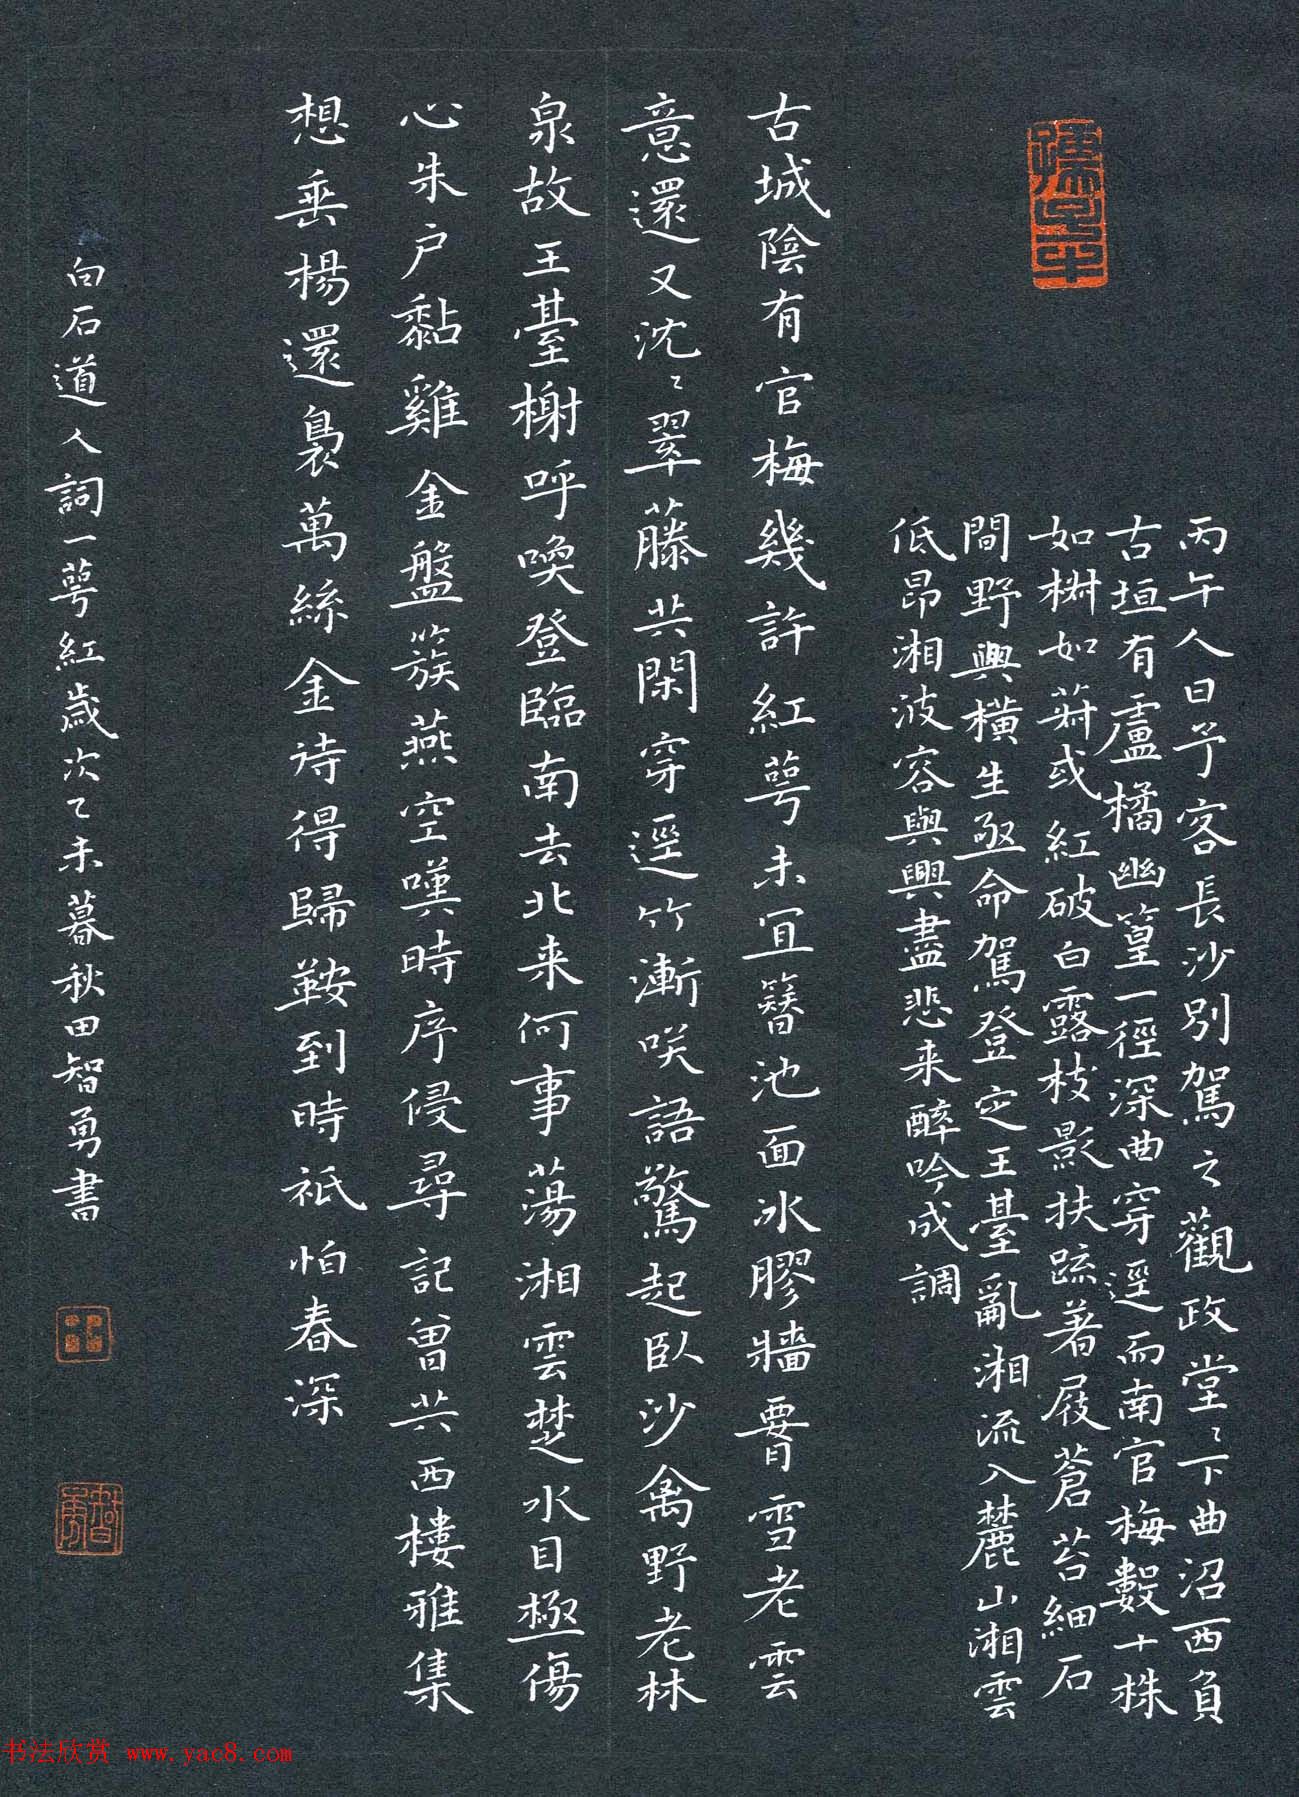 丙午人日予客長沙別駕之觀政堂〻下曲沼西負
古垣有盧橘幽篁一徑深曲穿逕而南官梅數十株
如椒如菽或紅破白露枝影扶疏著屐蒼苔細石
間野興橫生亟命駕登定王臺亂湘流入麓山湘雲
低昂湘波容與興盡悲来醉吟成調
古城陰有官梅幾許紅萼未宜簪池面冰膠牆䁂雪老雲
意還又沈〻翠藤共閑穿逕竹漸咲語驚起臥沙禽野老林
泉故王臺榭呼喚登臨南去北来何事蕩湘雲楚水目極傷
心朱户黏雞金盤簇燕空嘆時序侵尋記曾共西樓雅集
想垂楊還裊萬絲金待得歸鞍到時衹怕春深
白石道人詞一萼紅歲次乙未暮秋田智勇書
智勇
书法欣赏 www.yac8.com